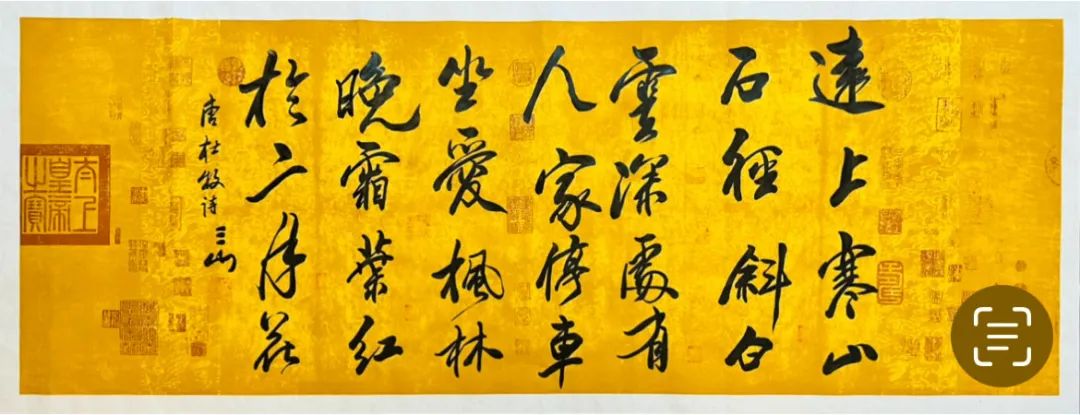 遠上寒山
石徑斜白
雲深處有
人家停車
坐愛楓林
晚霜葉紅
於二月花
唐杜牧詩 三山
太上
皇帝
之寶